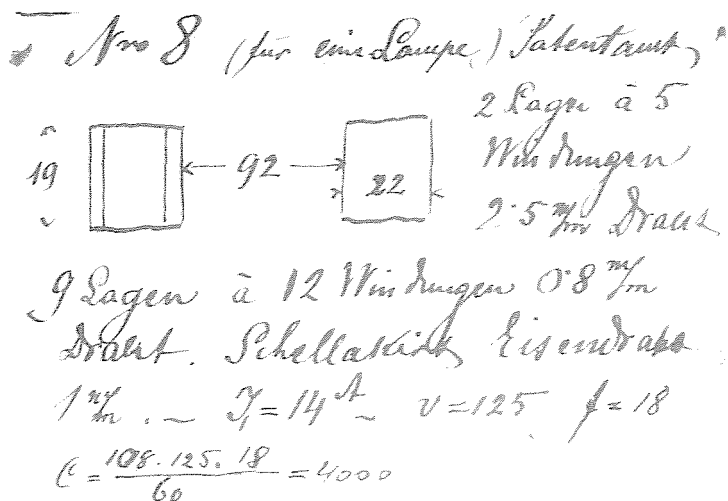 Nro 8 (für eine Lampe) Patentamt
2 Lagen à 5
Windungen
2·5 m/m Draht
19
92
22
9 Lagen à 12 Windungen 0·8 m/m
Draht. Schellackirt, Eisendraht
1 m/m. – J₁ = 14 A – v = 125 f = 18
C = 108·125·18 / 60 = 4000